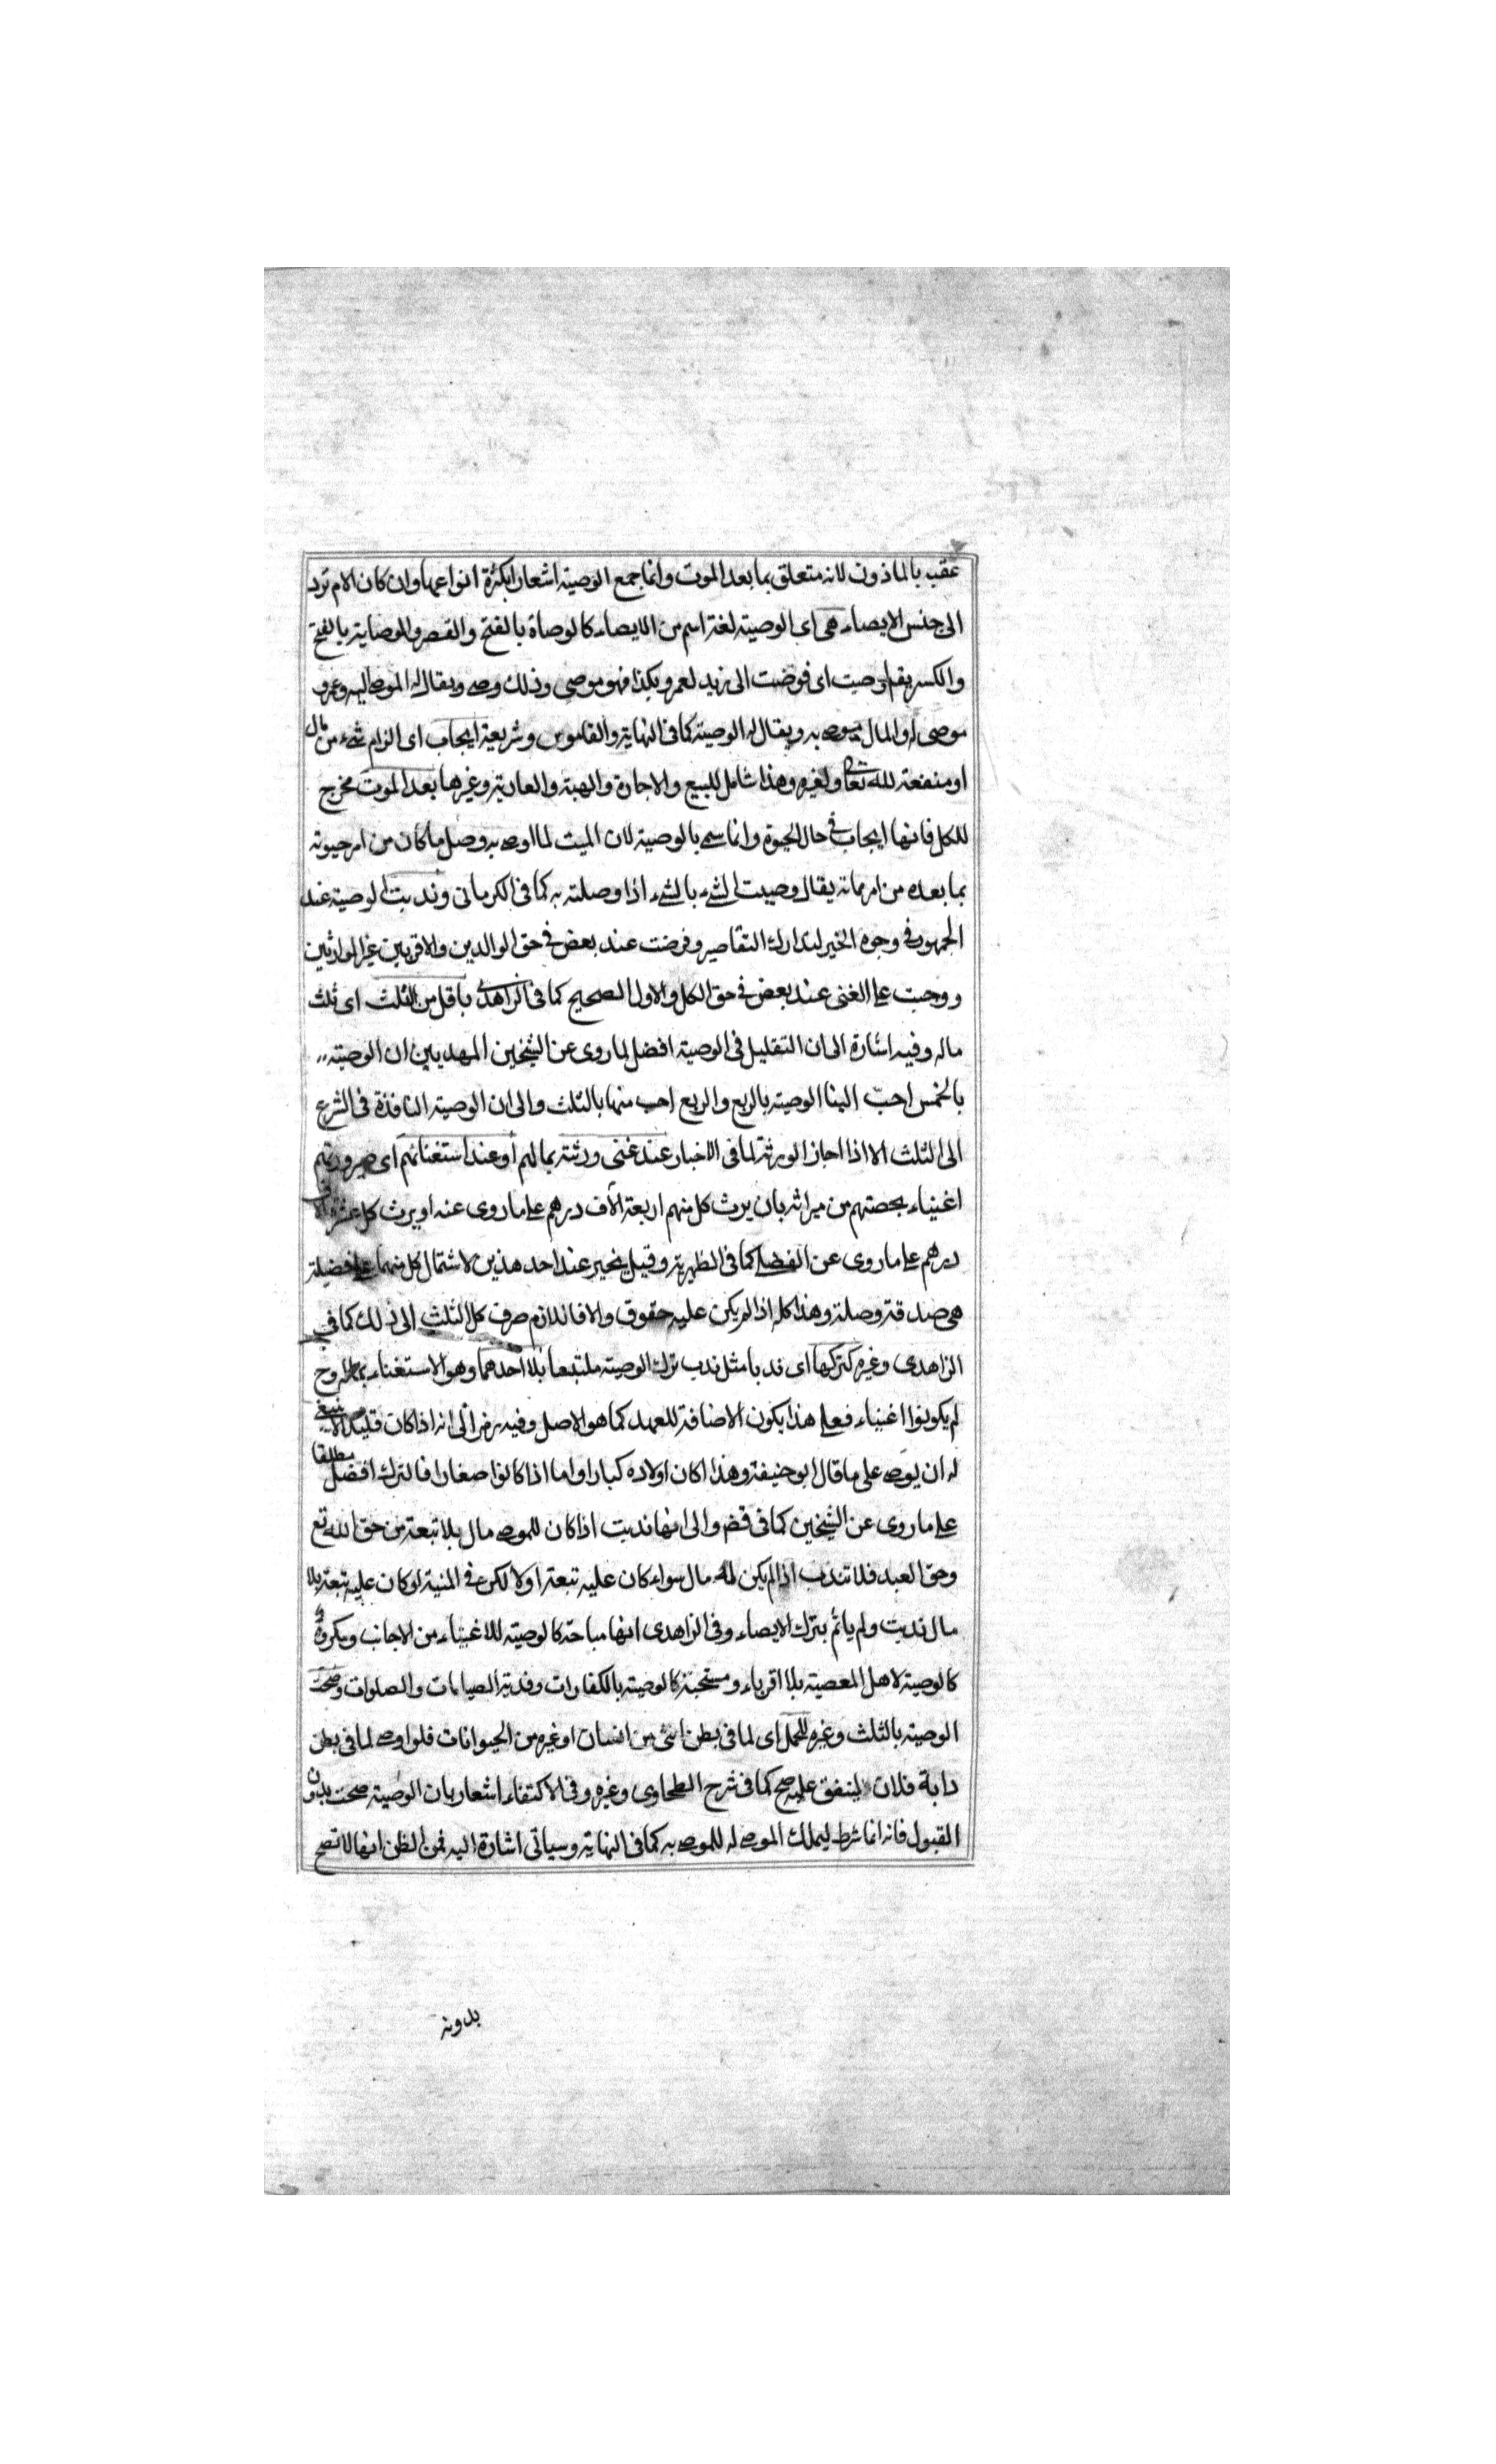 عقب بالماذون لانه متعلق بما بعد الموت وانما جمع الوصية اشعارا بكثرة انواعها وان كان الام ترد
الى جنس الايصاء هى اى الوصية لغة اسم من الايصاء كالوصاة بالفتح والقصر والوصاية بالفتح
والكسر يقم اوصيت اى فوضت الى زيد لعمرو بكذا فهو موصى وذلك وصى ويقال له الموصى اليه وعمرو
موصى له والمال موصى به ويقال له الوصية كما فى النهاية والقاموس وشريعة ايجاب اى الزام شىء من مال
او منفعة لله تعالى او لغيره وهذا شامل للبيع والاجارة والهبة والعارية وغيرها بعد الموت مخرج
للكل فانها ايجاب فى حال الحيوة وانما سمى بالوصية لان الميت لما اوصى به وصل ما كان من امر حيوته
بما بعده من امر مماته يقال وصيت الشىء بالشىء اذا وصلته به كما فى الكرمانى وندبت الوصية عند
الجمهور فى وجوه الخير لتدارك التقاصير وفرضت عند بعض فى حق الوالدين والاقربين غير الوارثين
ووجبت على الغنى عند بعض فى حق الكل والاول الصحيح كما فى الزاهدى باقل من الثلث اى ثلث
ماله وفيه اشارة الى ان التقليل فى الوصية افضل لما روى عن الشيخين المهديين ان الوصية
بالخمس احب الينا الوصية بالربع والربع احب منها بالثلث والى ان الوصية النافذة فى الشرع
الى الثلث الا اذا اجاز الورثة لما فى الاخبار عند غنى ورثته بمالهم او عند استغنائهم اى صيرورتهم
اغنياء بحصتهم من ميراثه بان يرث كل منهم اربعة الآف درهم على ما روى عنه او يرث كل عشرة الاف
درهم على ما روى عن الفضلى كما فى الظهيرية وقيل يخير عند احد هذين لاشتمال كل منهما على فضيلة
هى صدقة وصلة وهذا كله اذا لم يكن عليه حقوق والا فاللازم صرف كل الثلث الى ذلك كما فى
الزاهدى وغيره كتركها اى ندبا مثل ندب ترك الوصية ملتبسا بلا احدهما وهو الاستغناء بماله وح
لم يكونوا اغنياء فعلى هذا يكون الاضافة للعهد كما هو الاصل وفيه رمز الى انه اذا كان قليلا لا ينبغى
له ان يوصى على ما قال ابو حنيفة وهذا اكان اولاده كبارا واما اذا كانوا صغارا فالترك افضل مطلقا
على ما روى عن الشيخين كما فى قضـ والى انها ندبت اذا كان للموصى مال بلا تبعة من حق الله تع
وحق العبد فلا تندب اذا لم يكن له مال سواء كان عليه تبعة او لا لكن فى المنية لو كان عليه تبعة بلا
مال ندبت ولم ياثم بترك الايصاء وفى الزاهدى انها مباحة كالوصية للاغنياء من الاجانب ومكروهة
كالوصية لاهل المعصية بلا اقرباء ومستحبة كالوصية بالكفارات وفدية الصيامات والصلوات وصحت
الوصية بالثلث وغيره للحمل اى لما فى بطن انثى من انسان او غيره من الحيوانات فلو اوصى لما فى بطن
دابة فلان لينفق عليه صح كما فى شرح الطحاوى وغيره وفى الاكتفاء اشعار بان الوصية صحت بدون
القبول فانه انما شرط ليملك الموصى له للموصى به كما فى النهاية وسياتى اشارة اليه فمن الظن انها لا تصح
بدونه